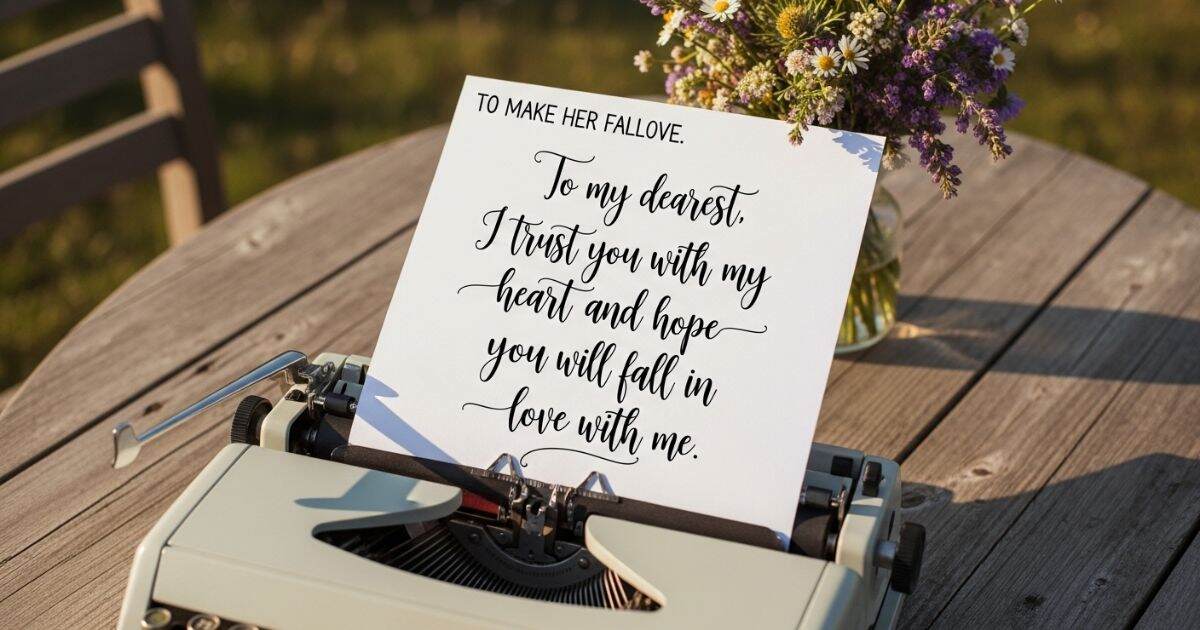 TO MAKE HER FALLOVE.
To my dearest,
I trust you with my
heart and hope
you will fall in
love with me.